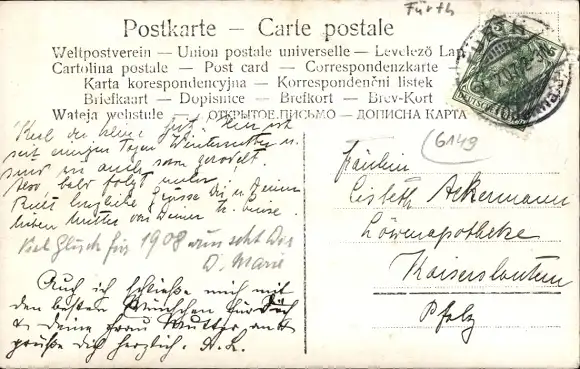 Fürth
Postkarte – Carte postale
Weltpostverein — Union postale universelle — Levelező Lap
Cartolina postale — Post card — Correspondenzkarte
Karta korespondencyjna — Korrespondenční listek
Briefkaart — Dopisnice — Brefkort — Brev-Kort
Weteja webstule — ОТКРЫТОЕ ПИСЬМО — ДОПИСНА КАРТА
6149
Hier ist
seit einigen Tagen Winterwetter u.
sind wir auch schon gerodelt.
bald folgt mehr.
Grüsse Dir u. Deiner
lieben Mutter von Deiner
Viel Glück für 1908 wünscht Dir
D. Marie
Auch ich schließe mich mit
den besten Wünschen für Dich
& deine Frau Mutter an &
grüße dich herzlich. A. L.
Fräulein
Lisbeth Ackermann
Löwenapotheke
Kaiserslautern
Pfalz